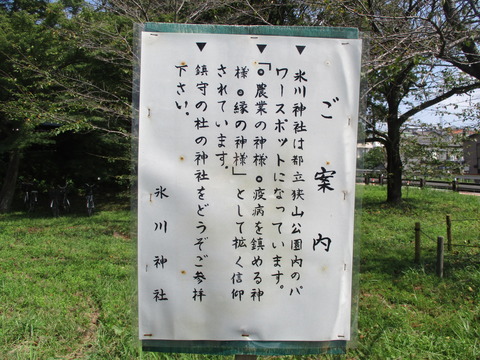 ご案内
▼氷川神社は都立狭山公園内のパ
ワースポットになっています。
▼「○農業の神様○疫病を鎮める神
様○縁の神様」として拡く信仰
されています。
▼鎮守の杜の神社をどうぞご参拝
下さい。
氷川神社